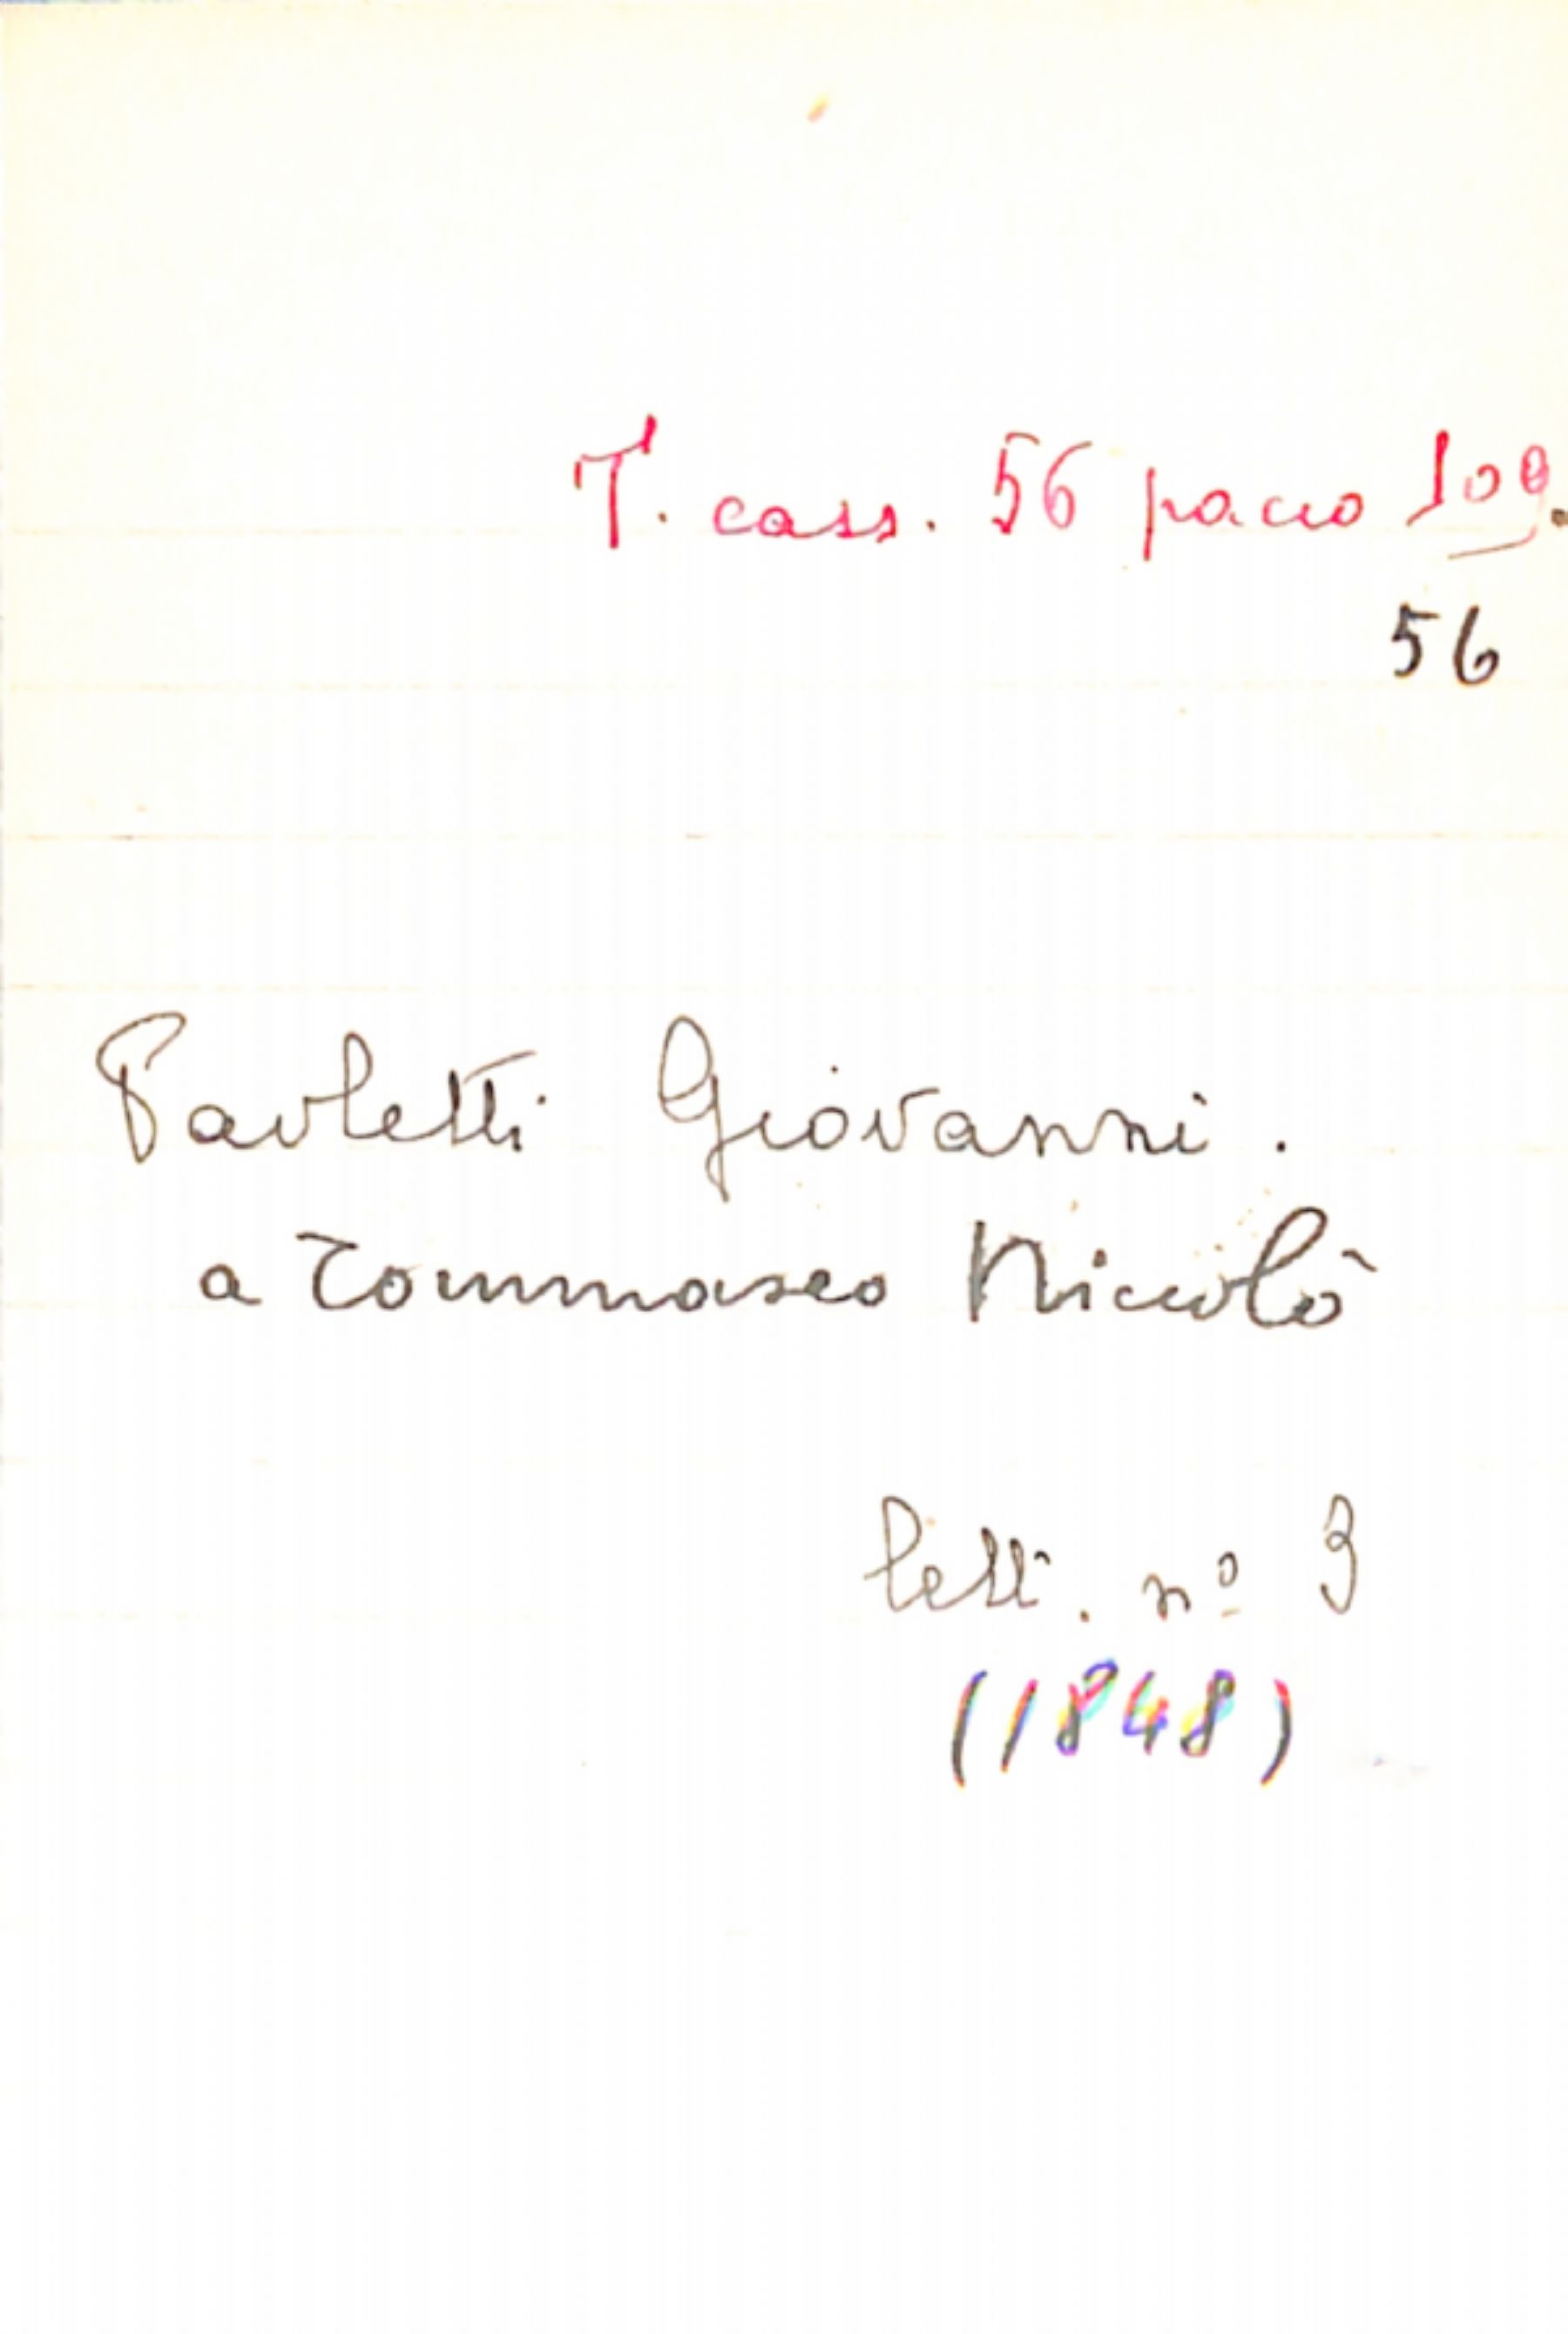 T. cass. 56 pacco 108.
56
Pavletti Giovanni.
a Tommaseo Niccolò
lett. nº 3
(1848)